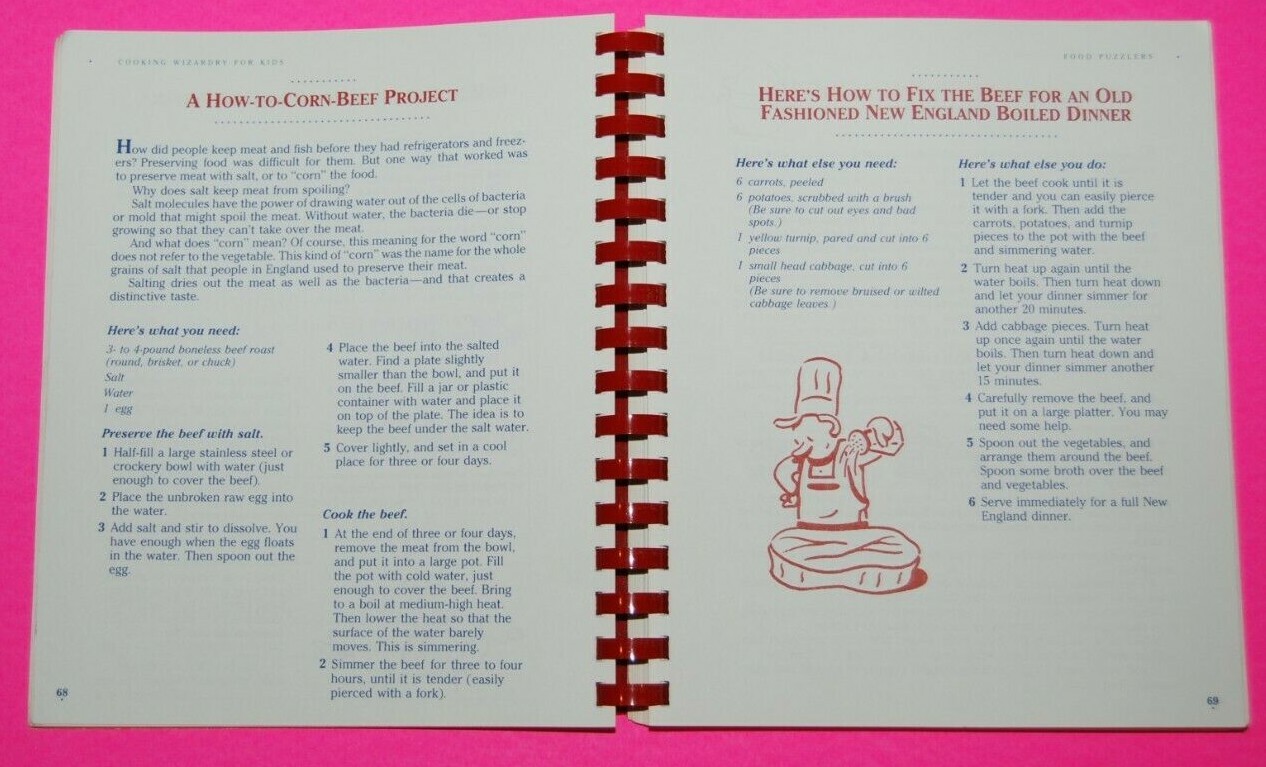 COOKING WIZARDRY FOR KIDS
A HOW-TO-CORN-BEEF PROJECT
How did people keep meat and fish before they had refrigerators and freez-
ers? Preserving food was difficult for them. But one way that worked was
to preserve meat with salt, or to "corn" the food.
Why does salt keep meat from spoiling?
Salt molecules have the power of drawing water out of the cells of bacteria
or mold that might spoil the meat. Without water, the bacteria die—or stop
growing so that they can't take over the meat.
And what does "corn" mean? Of course, this meaning for the word "corn"
does not refer to the vegetable. This kind of "corn" was the name for the whole
grains of salt that people in England used to preserve their meat.
Salting dries out the meat as well as the bacteria—and that creates a
distinctive taste.
Here's what you need:
3- to 4-pound boneless beef roast
(round, brisket, or chuck)
Salt
Water
1 egg
Preserve the beef with salt.
1 Half-fill a large stainless steel or
crockery bowl with water (just
enough to cover the beef).
2 Place the unbroken raw egg into
the water.
3 Add salt and stir to dissolve. You
have enough when the egg floats
in the water. Then spoon out the
egg.
4 Place the beef into the salted
water. Find a plate slightly
smaller than the bowl, and put it
on the beef. Fill a jar or plastic
container with water and place it
on top of the plate. The idea is to
keep the beef under the salt water.
5 Cover lightly, and set in a cool
place for three or four days.
Cook the beef.
1 At the end of three or four days,
remove the meat from the bowl,
and put it into a large pot. Fill
the pot with cold water, just
enough to cover the beef. Bring
to a boil at medium-high heat.
Then lower the heat so that the
surface of the water barely
moves. This is simmering.
2 Simmer the beef for three to four
hours, until it is tender (easily
pierced with a fork).
68
FOOD PUZZLERS
HERE'S HOW TO FIX THE BEEF FOR AN OLD
FASHIONED NEW ENGLAND BOILED DINNER
Here's what else you need:
6 carrots, peeled
6 potatoes, scrubbed with a brush
(Be sure to cut out eyes and bad
spots.)
1 yellow turnip, pared and cut into 6
pieces
1 small head cabbage, cut into 6
pieces
(Be sure to remove bruised or wilted
cabbage leaves.)
Here's what else you do:
1 Let the beef cook until it is
tender and you can easily pierce
it with a fork. Then add the
carrots, potatoes, and turnip
pieces to the pot with the beef
and simmering water.
2 Turn heat up again until the
water boils. Then turn heat down
and let your dinner simmer for
another 20 minutes.
3 Add cabbage pieces. Turn heat
up once again until the water
boils. Then turn heat down and
let your dinner simmer another
15 minutes.
4 Carefully remove the beef, and
put it on a large platter. You may
need some help.
5 Spoon out the vegetables, and
arrange them around the beef.
Spoon some broth over the beef
and vegetables.
6 Serve immediately for a full New
England dinner.
69